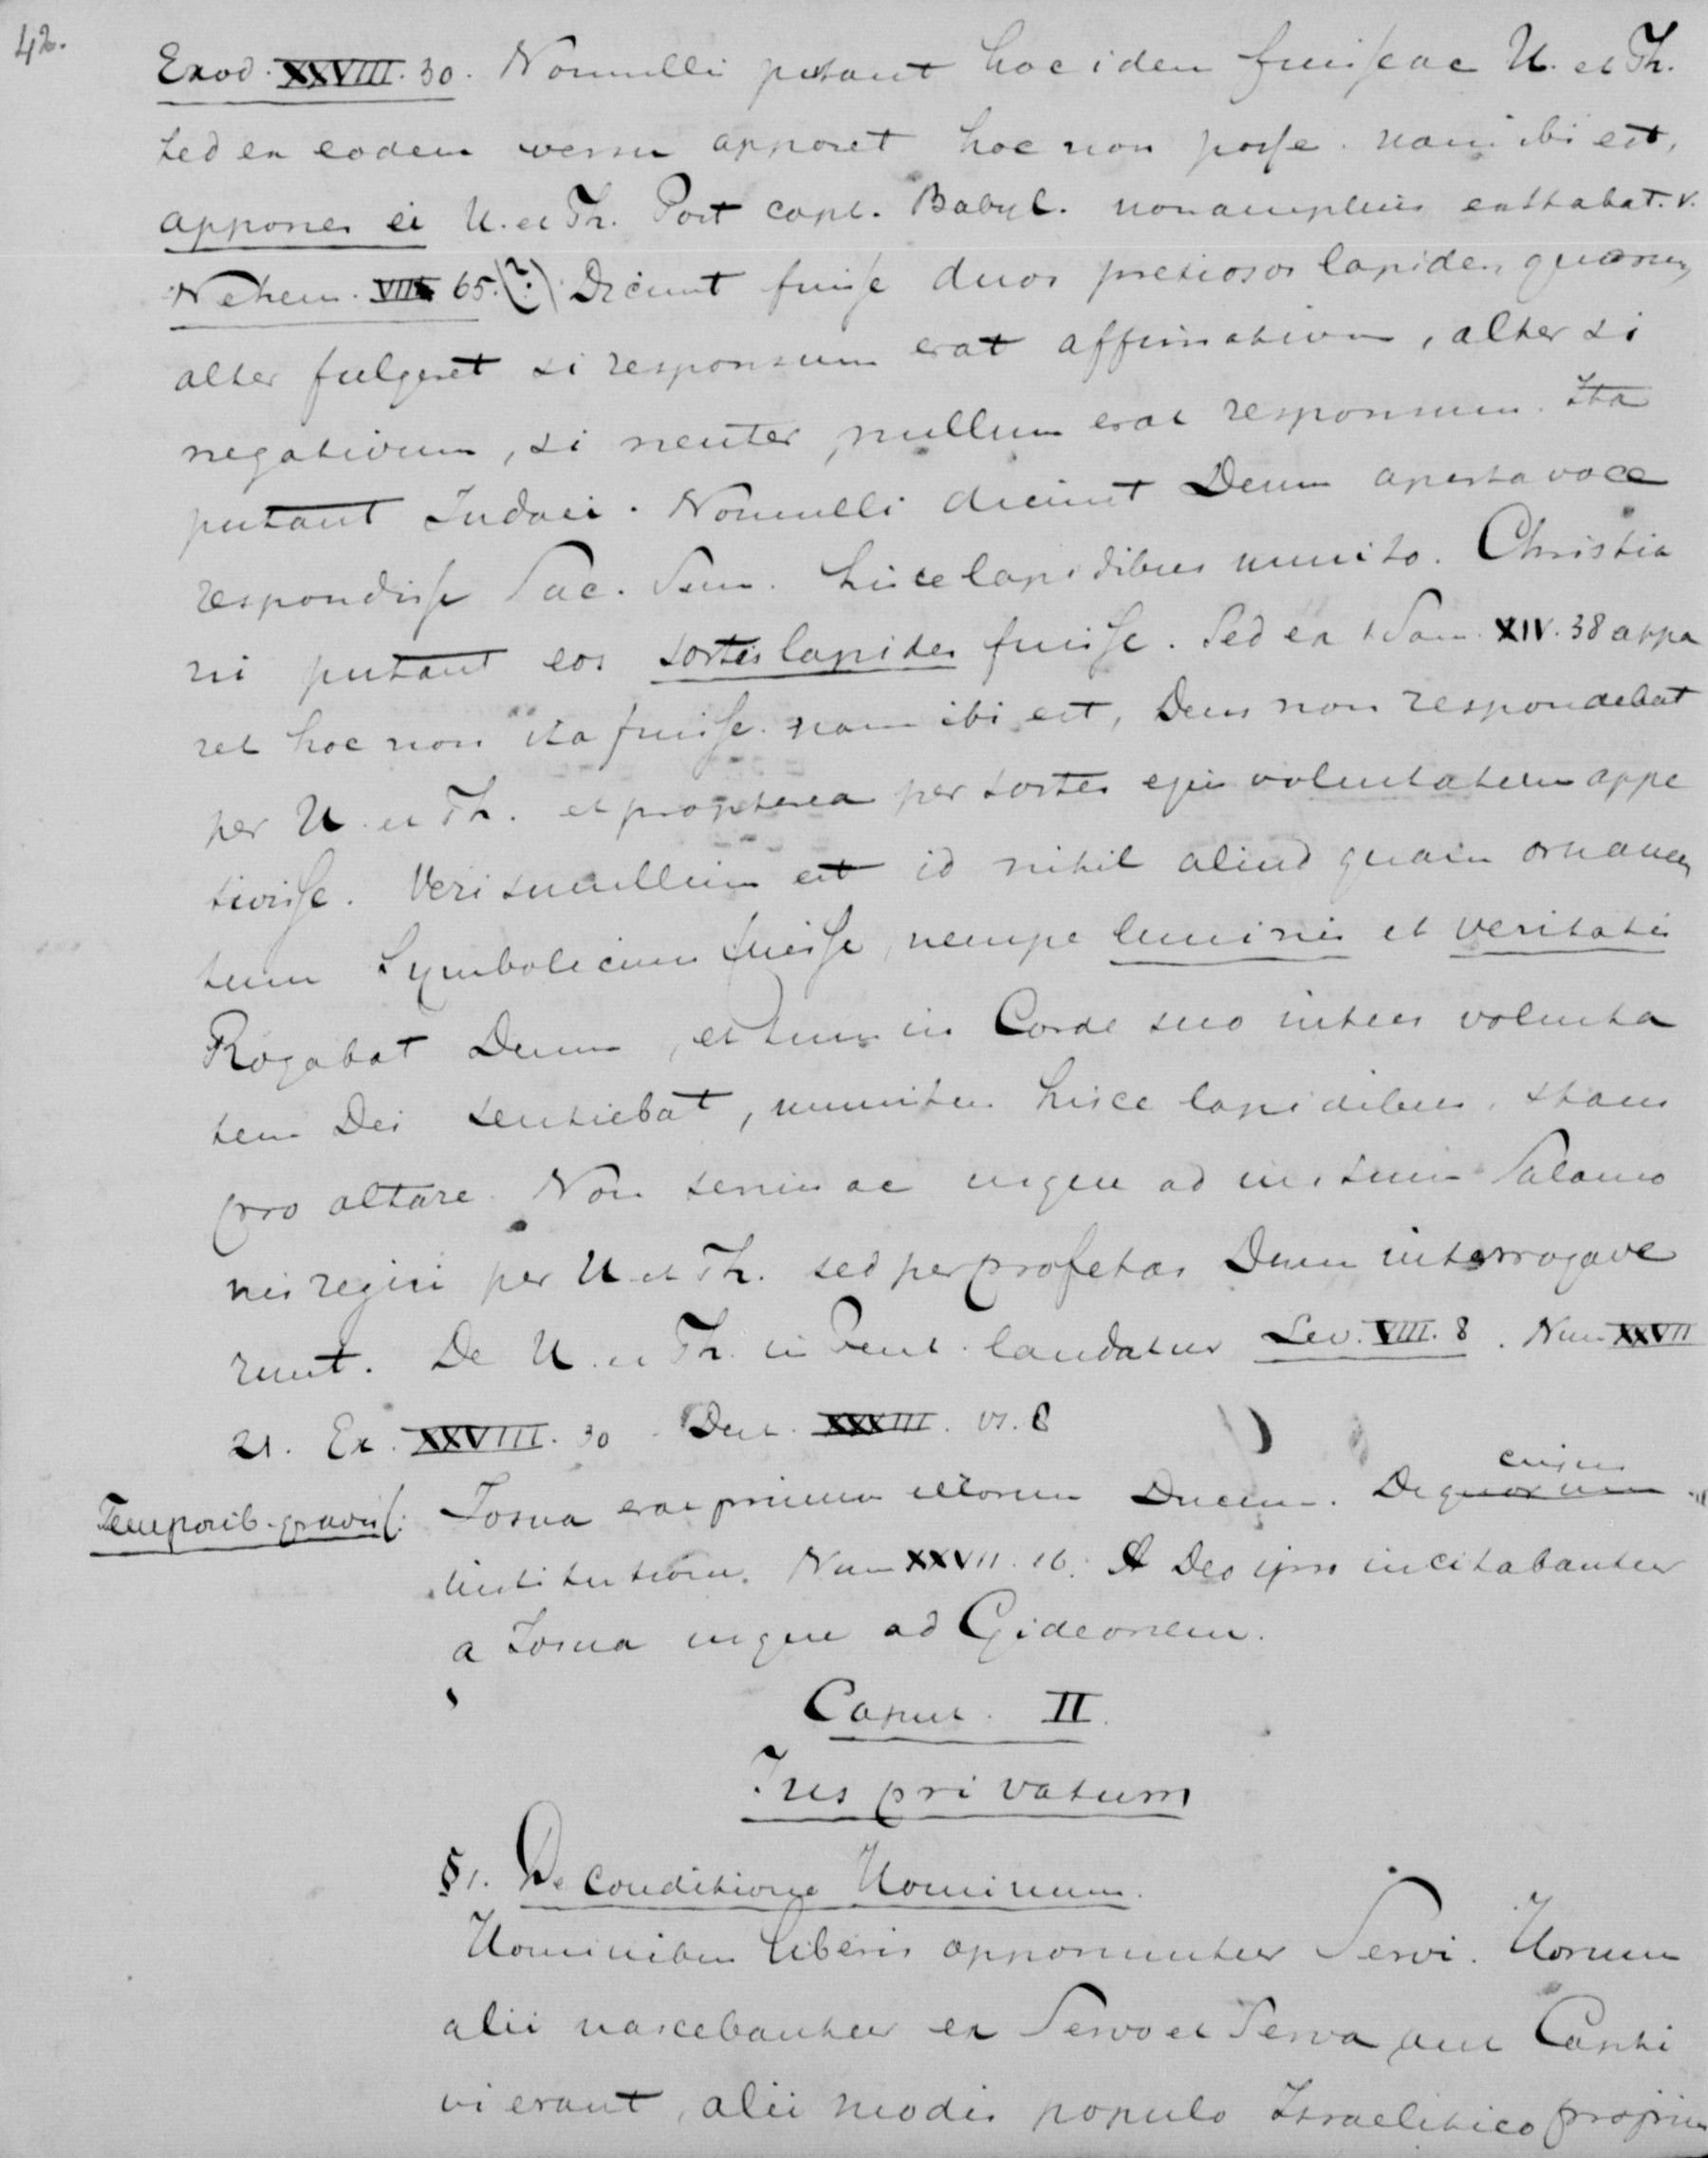 42.
Exod. XXVIII. 30. Nonnulli putant hoc idem fuisse ac U. et Th.
sed ex eodem versu apparet hoc non posse. nam ibi est,
appones ei U. et Th. Post capt. Babyl. non amplius exstabat. v.
Nehem. VII 65. (?) Dicunt fuisse duos pretiosos lapides, quorum
alter fulgeret si responsum erat affirmativum, alter si
negativum, si neuter, nullum erat responsum. Ita
putant Judaei. Nonnulli dicunt Deum aperta voce
respondisse Sac. Sum. hisce lapidibus munito. Christia
ni putant eos sortis lapides fuisse. Sed ex 1 Sam. XIV. 38 appa
ret hoc non ita fuisse. nam ibi est, Deus non respondebat
per U. et Th. et propterea per sortes ejus voluntatem appe
tivisse. Verisimillimum est id nihil aliud quam ornamen
tum Symbolicum fuisse, nempe luminis et veritatis
Rogabat Deum, et tum in Corde suo intus volunta
tem Dei sentiebat, munitus hisce lapidibus, stans
pro altare. Non serius ac usque ad initium Salomo
nis regni per U. et Th. sed per profetas Deum interrogave
runt. De U. et Th. in Pent. laudatur Lev. VIII. 8. Num XXVII
21. Ex. XXVIII. 30. Deut. XXXIII. vs. 8
Temporib. graviss: Josua erat primus illorum Ducum. De quorum
cujus
institutione. Num XXVII. 16. A Deo ipso incitabantur
a Josua usque ad Gideonem.
Caput. II.
Jus privatum
§ 1. De conditione Hominum.
Hominibus liberis opponuntur Servi. Horum
alii nascebantur ex Servo et Serva, aut Capti
vi erant, alii modis populo Israelitico propriis